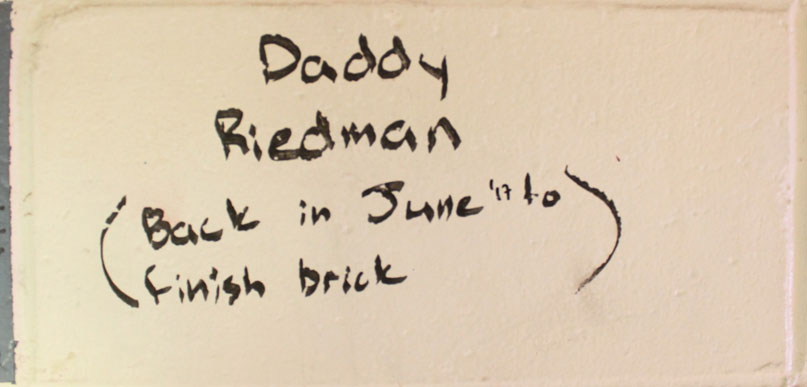 Daddy
Riedman
(Back in June '17 to
finish brick)